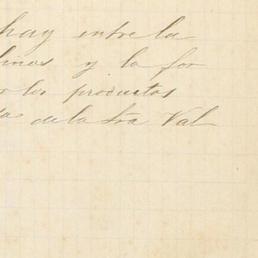 hay entre la
linos y la for
los productos
de la Sra Val